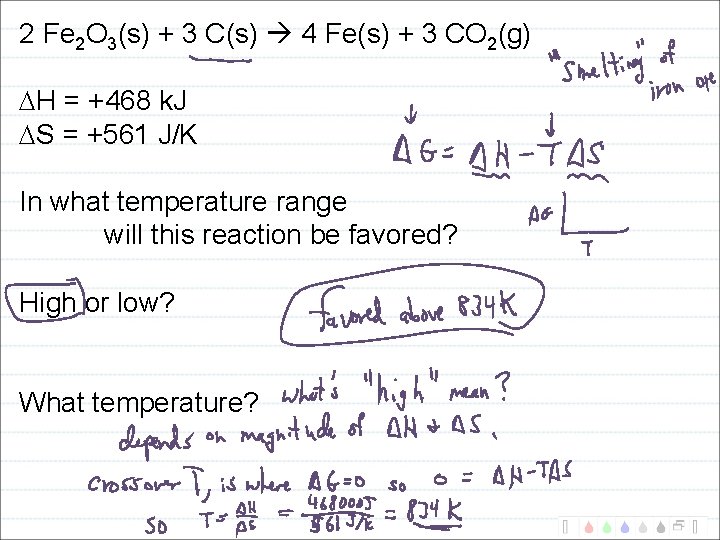 2 Fe2O3(s) + 3 C(s) → 4 Fe(s) + 3 CO2(g)
"Smelting" of
iron ore
∆H = +468 kJ
∆S = +561 J/K
∆G = ∆H - T∆S
In what temperature range
will this reaction be favored?
∆G
T
High or low?
favored above 834K
What temperature?
what's "high" mean?
depends on magnitude of ∆H + ∆S.
crossover T, is where ∆G=0 so 0 = ∆H-T∆S
so T = ∆H/∆S = 468000J/561 J/K = 834 K